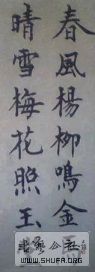 春風楊柳鳴金馬
晴雪梅花照玉
WWW.SHUFA.ORG